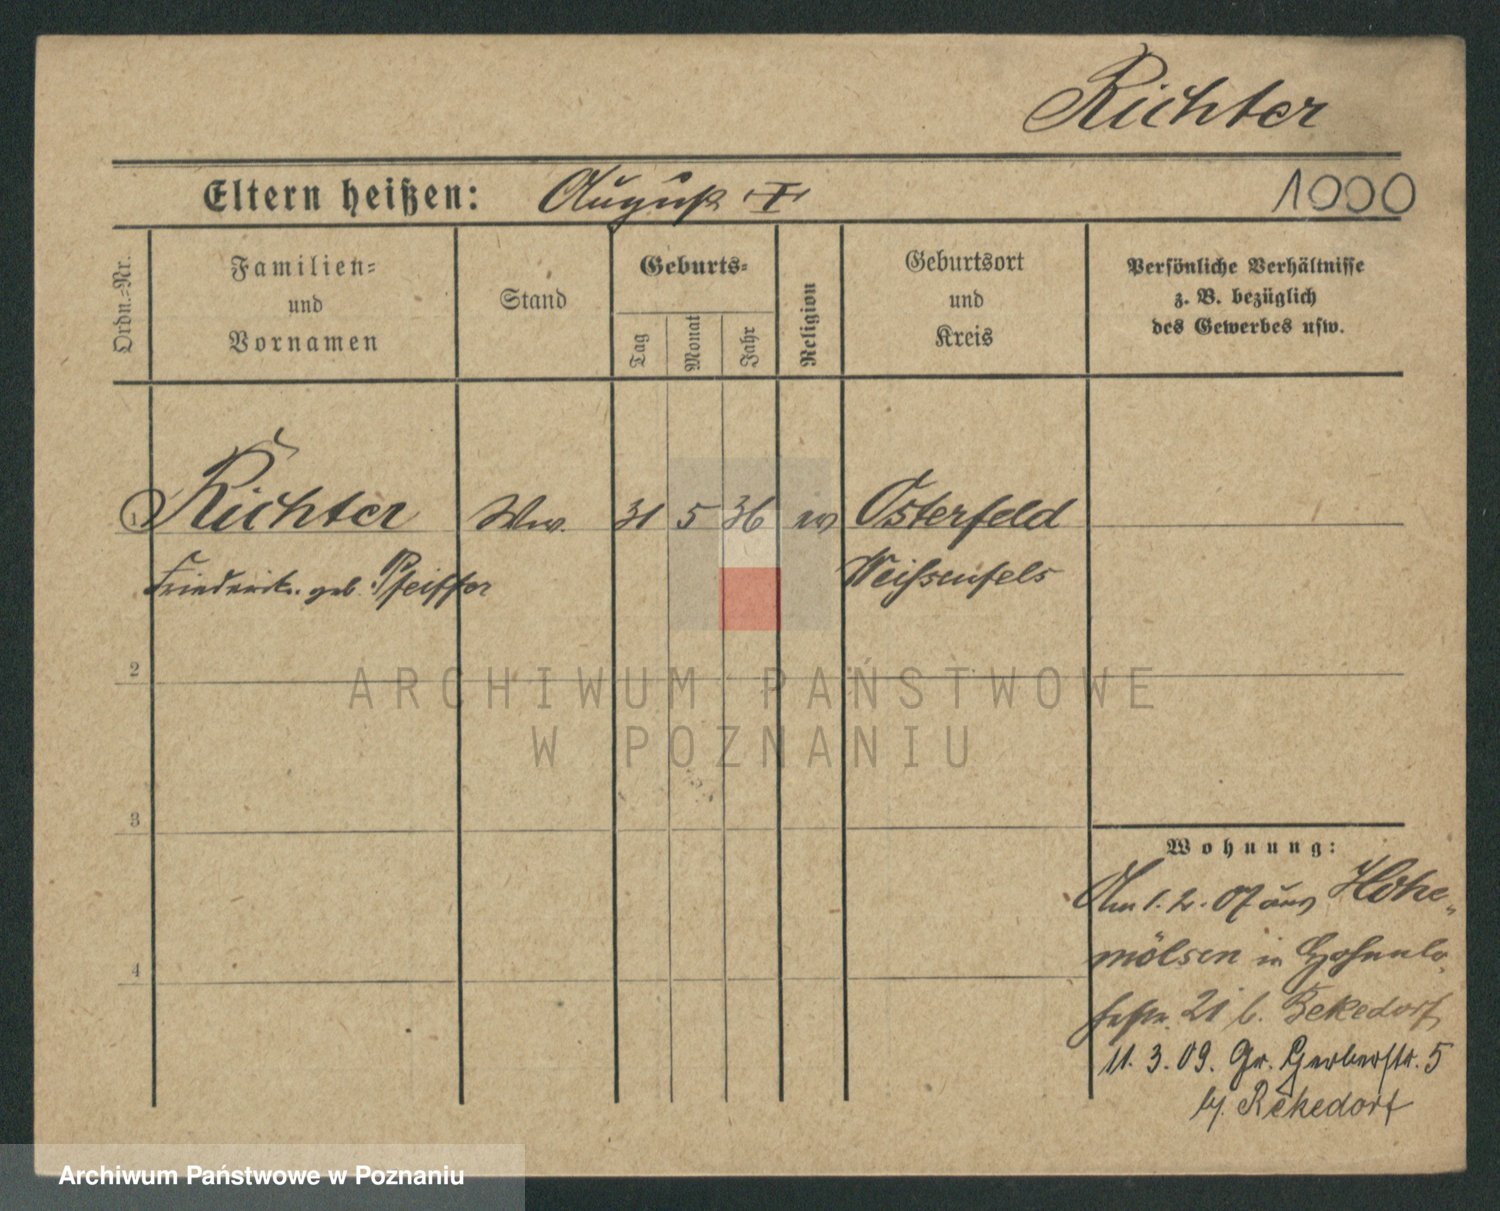 Richter
Eltern heißen: August I
1000
Ordn.=Nr.
Familien=
und
Vornamen
Stand
Geburts=
Tag
Monat
Jahr
Religion
Geburtsort
und
Kreis
Persönliche Verhältnisse
z. B. bezüglich
des Gewerbes usw.
1 Richter Ww. 31 5 36 ev Osterfeld
Friederike geb. Pfeiffer Weißenfels
2
ARCHIWUM PAŃSTWOWE
W POZNANIU
3
4
Wohnung:
Am 1. 2. 07 aus Hohe-
mölsen in
21 b. Rekedorf
11. 3. 09. Gr. Gerberstr. 5
b/. Rekedorf
Archiwum Państwowe w Poznaniu